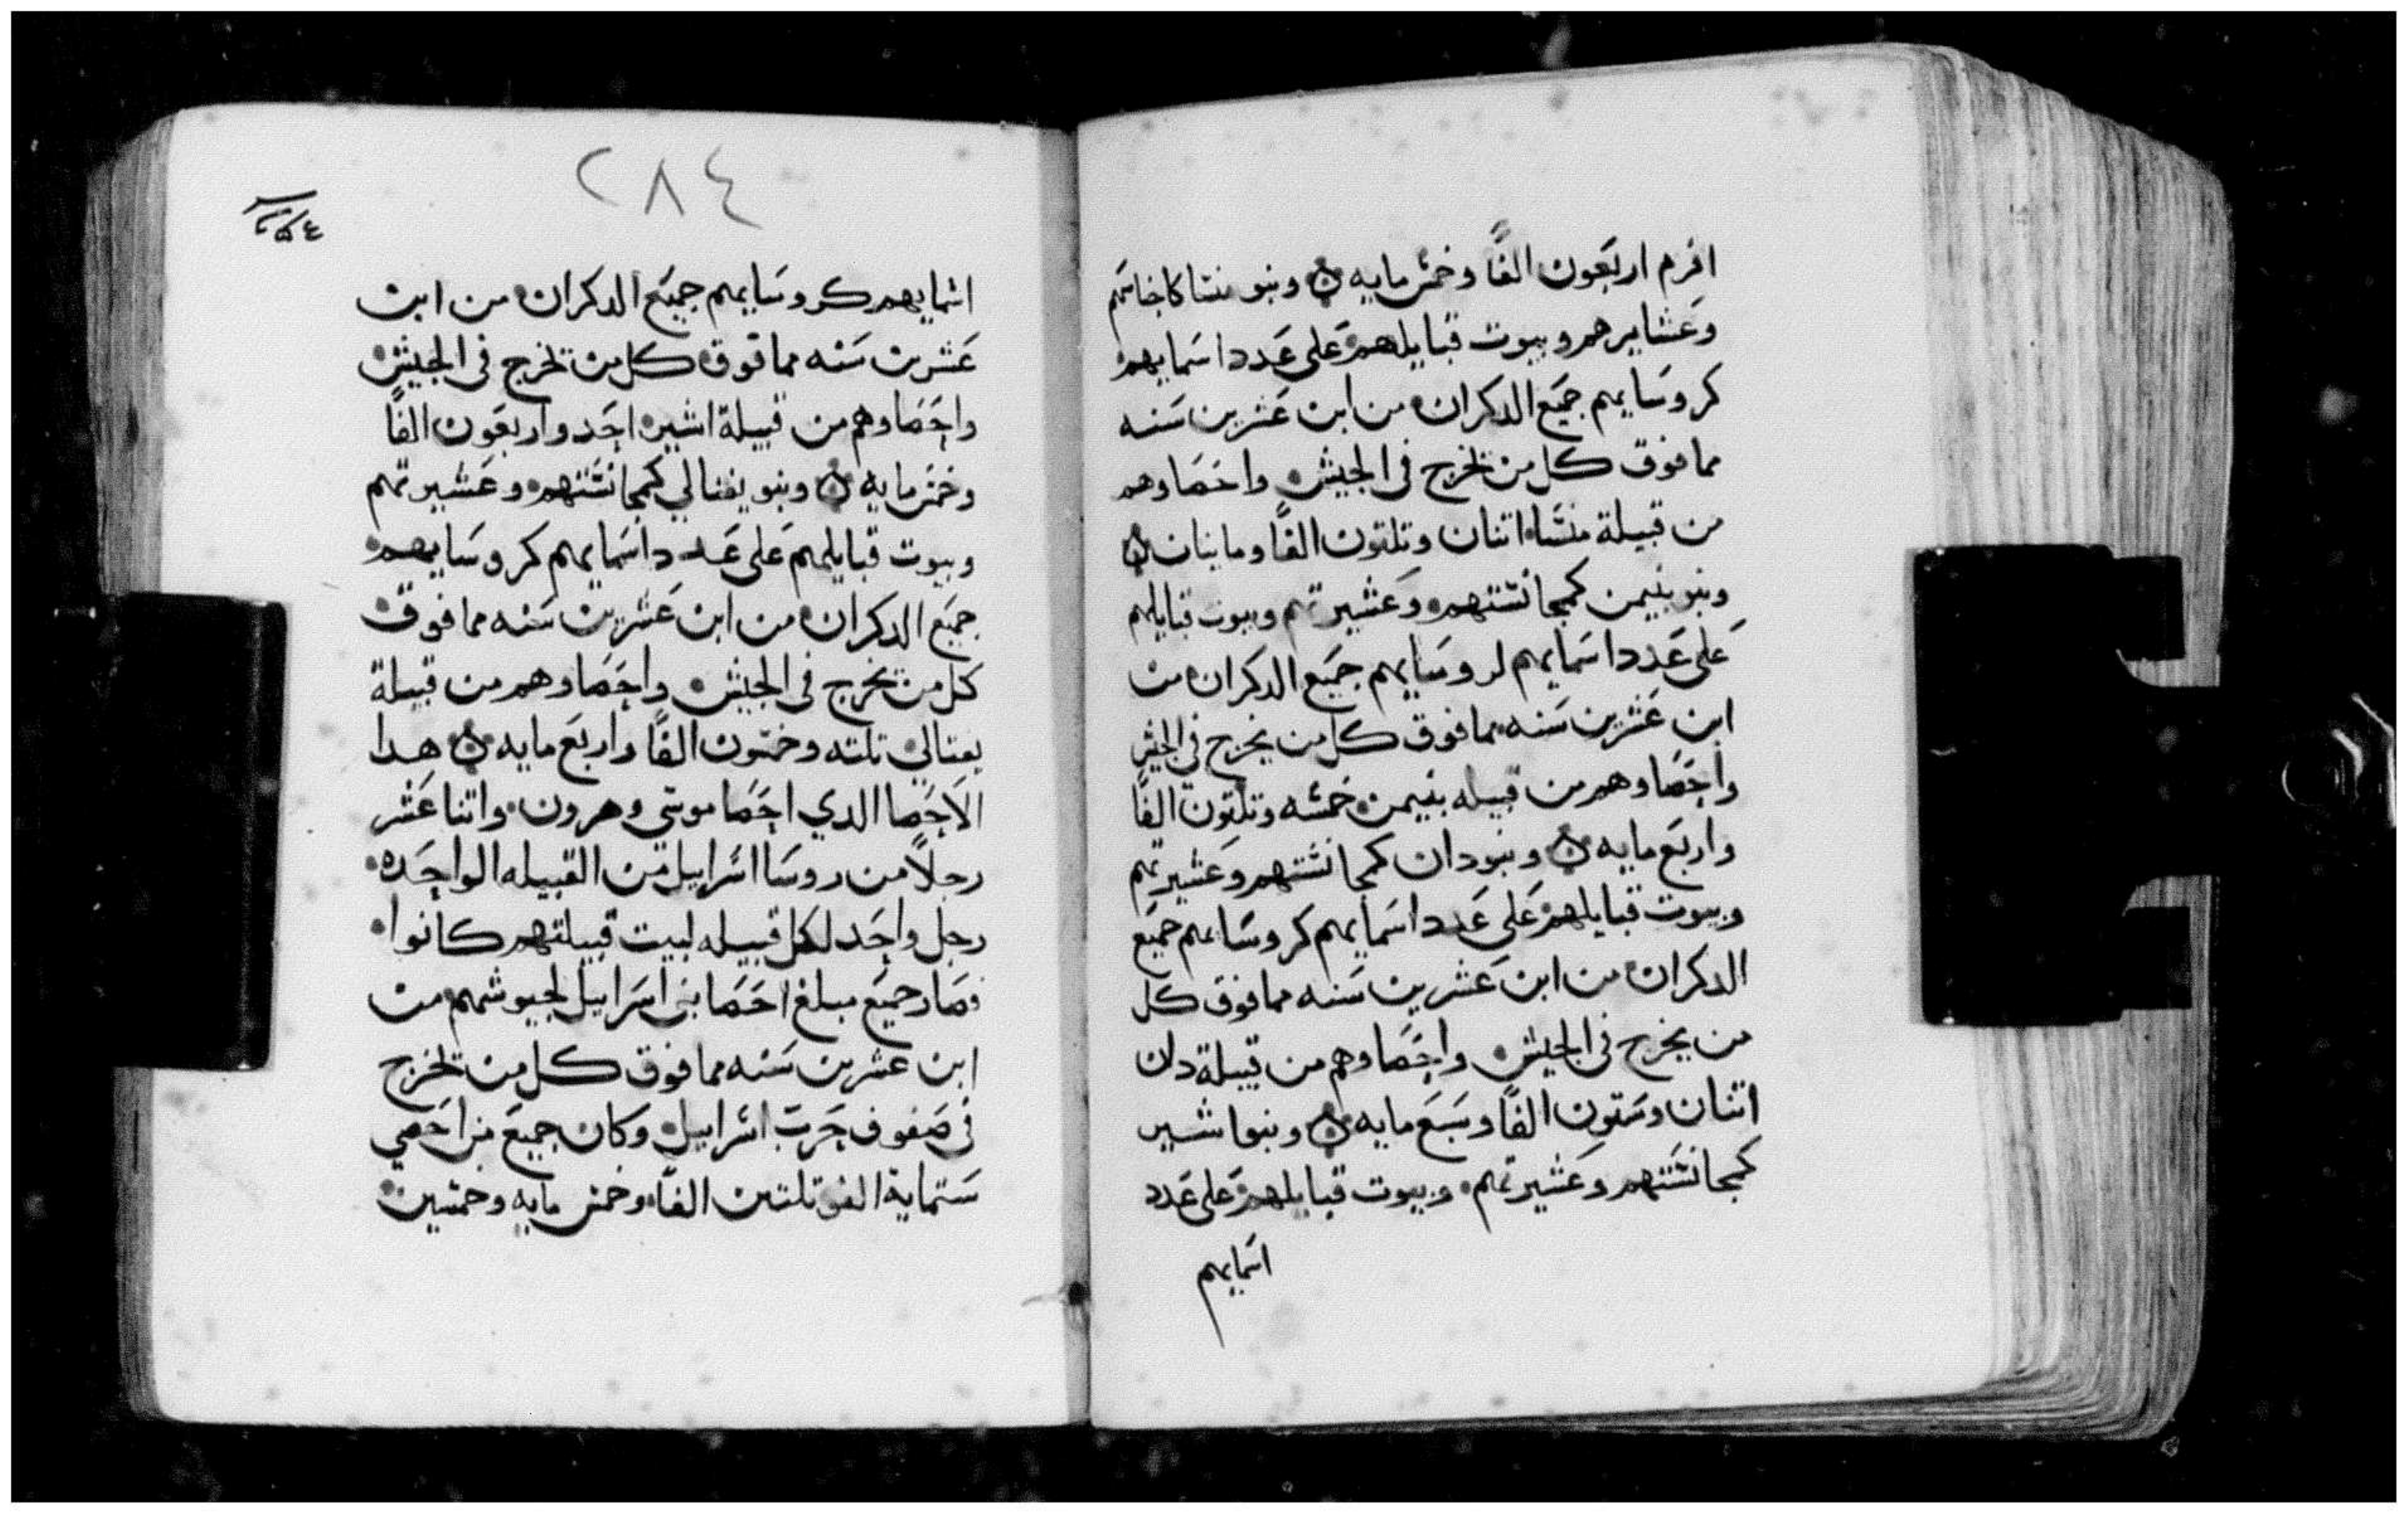 افرم اربعون الفًا وخمس مايه ۞ وبنو منشا كاجناسهم
وعشايرهم وبيوت قبايلهم على عدد اسمايهم
كروسايهم جميع الدكران من ابن عشرين سنه
مما فوق كل من تخرج فى الجيش واحصاوهم
من قبيلة منشا اتنان وتلتون الفًا ومايتان ۞
وبنو بنيمن كمجانستهم وعشيرتهم وبيوت قبايلهم
على عدد اسمايهم لروسايهم جميع الدكران من
ابن عشرين سنه مما فوق كل من يخرج في الجيش
واحصاوهم من قبيله بنيمن خمسه وتلتون الفًا
واربع مايه ۞ وبنو دان كمجانستهم وعشيرتهم
وبيوت قبايلهم على عدد اسمايهم كروسايهم جميع
الدكران من ابن عشرين سنه مما فوق كل
من يخرج فى الجيش واحصاوهم من قبيلة دان
اتنان وستون الفًا وسبع مايه ۞ وبنو اشير
كمجانستهم وعشيرتهم وبيوت قبايلهم على عدد
اسمايهم
٢٨٤
٢٥٤
اسمايهم كروسايهم جميع الدكران من ابن
عشرين سنه مما فوق كل من تخرج فى الجيش
واحصاوهم من قبيلة اشير احد واربعون الفًا
وخمس مايه ۞ وبنو يفتالي كمجانستهم وعشيرتهم
وبيوت قبايلهم على عدد اسمايهم كروسايهم
جميع الدكران من ابن عشرين سنه مما فوق
كل من يخرج فى الجيش واحصاوهم من قبيلة
يفتالي تلته وخمسون الفًا واربع مايه ۞ هدا
الاحصا الدي احصا موسى وهرون واتنا عشر
رجلاً من روسا اسراييل من القبيله الواحده
رجل واحد لكل قبيله لبيت قبيلتهم كانوا
وصار جميع مبلغ احصا بنى اسراييل لجيوشهم من
ابن عشرين سنه مما فوق كل من تخرج
فى صفوف حرب اسراييل وكان جميع من احصي
ستماية الف وتلتين الفًا وخمس مايه وخمسين